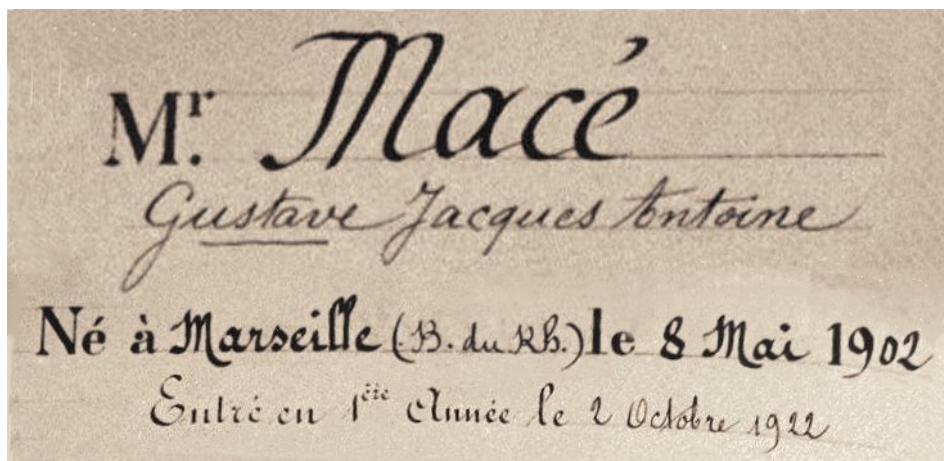 Mr. Macé
Gustave Jacques Antoine
Né à Marseille (B. du Rh.) le 8 Mai 1902
Entré en 1ère Année le 2 Octobre 1922